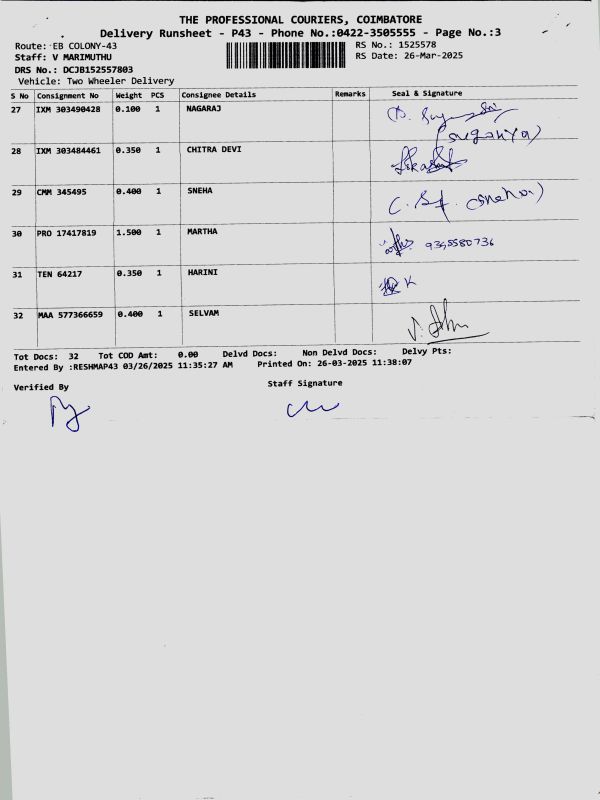 THE PROFESSIONAL COURIERS, COIMBATORE
Delivery Runsheet - P43 - Phone No.:0422-3505555 - Page No.:3
Route: EB COLONY-43
RS No.: 1525578
Staff: V MARIMUTHU
RS Date: 26-Mar-2025
DRS No.: DCJB152557803
Vehicle: Two Wheeler Delivery
S No Consignment No Weight PCS Consignee Details Remarks Seal & Signature
27 IXM 303490428 0.100 1 NAGARAJ
(suganya)
28 IXM 303484461 0.350 1 CHITRA DEVI
29 CMM 345495 0.400 1 SNEHA (sneha)
30 PRO 17417819 1.500 1 MARTHA 9345580736
31 TEN 64217 0.350 1 HARINI K
32 MAA 577366659 0.400 1 SELVAM
Tot Docs: 32 Tot COD Amt: 0.00 Delvd Docs: Non Delvd Docs: Delvy Pts:
Entered By :RESHMAP43 03/26/2025 11:35:27 AM Printed On: 26-03-2025 11:38:07
Verified By Staff Signature